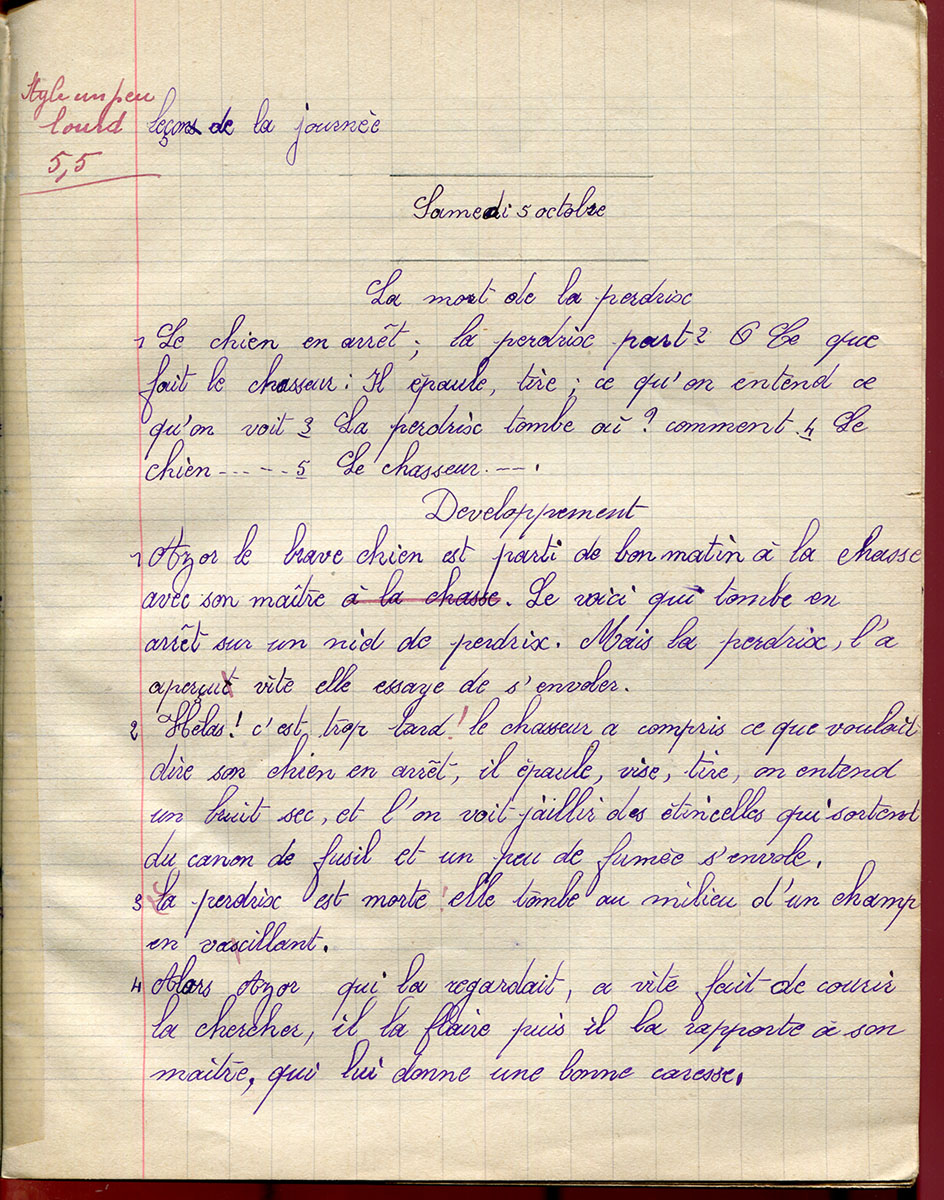 Style un peu
lourd
5,5
leçons de la journée
Samedi 5 octobre
La mort de la perdrix
1 Le chien en arrêt ; la perdrix part 2 Ce que
fait le chasseur : Il épaule, tire ; ce qu'on entend ce
qu'on voit 3 La perdrix tombe où ? comment 4 Le
chien ..... 5 Le chasseur ....
Developpement
1 Azor le brave chien est parti de bon matin à la chasse
avec son maître à la chasse. Le voici qui tombe en
arrêt sur un nid de perdrix. Mais la perdrix, l'a
aperçut vite elle essaye de s'envoler.
2 Hélas ! c'est trop tard ! le chasseur a compris ce que voulait
dire son chien en arrêt, il épaule, vise, tire, on entend
un bruit sec, et l'on voit jaillir des étincelles qui sortent
du canon de fusil et un peu de fumée s'envole.
3 La perdrix est morte ! elle tombe au milieu d'un champ
en vascillant.
4 Alors Azor qui la regardait, a vite fait de courir
la chercher, il la flaire puis il la rapporte à son
maître, qui lui donne une bonne caresse.